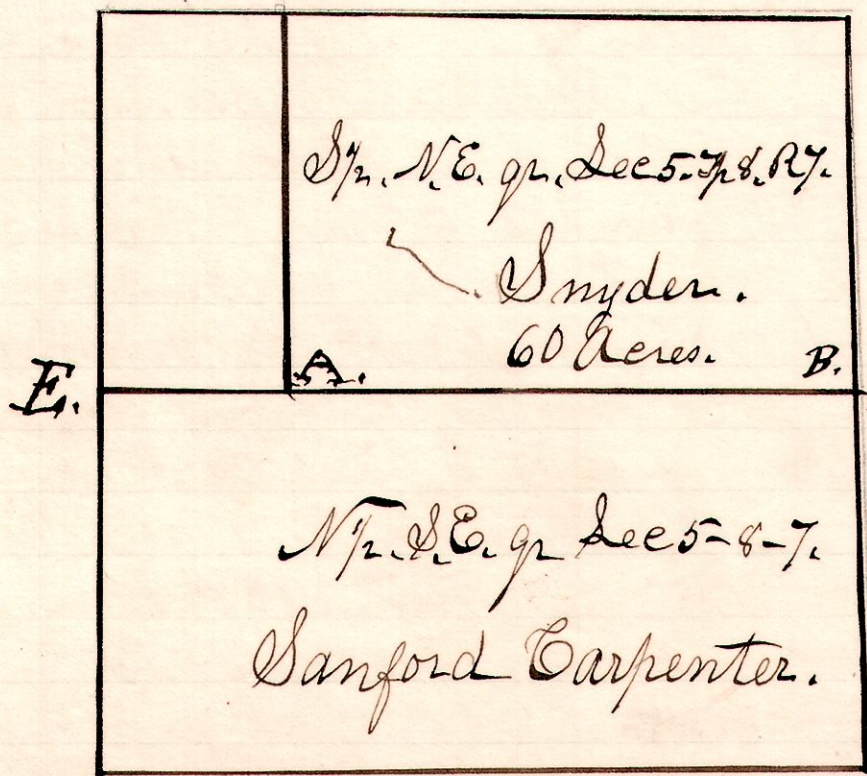 S½. N.E. qr. Sec 5. Tp 8. R 7.
Snyder.
60 Acres.
A.
B.
E.
N½. S.E. qr Sec 5-8-7.
Sanford Carpenter.